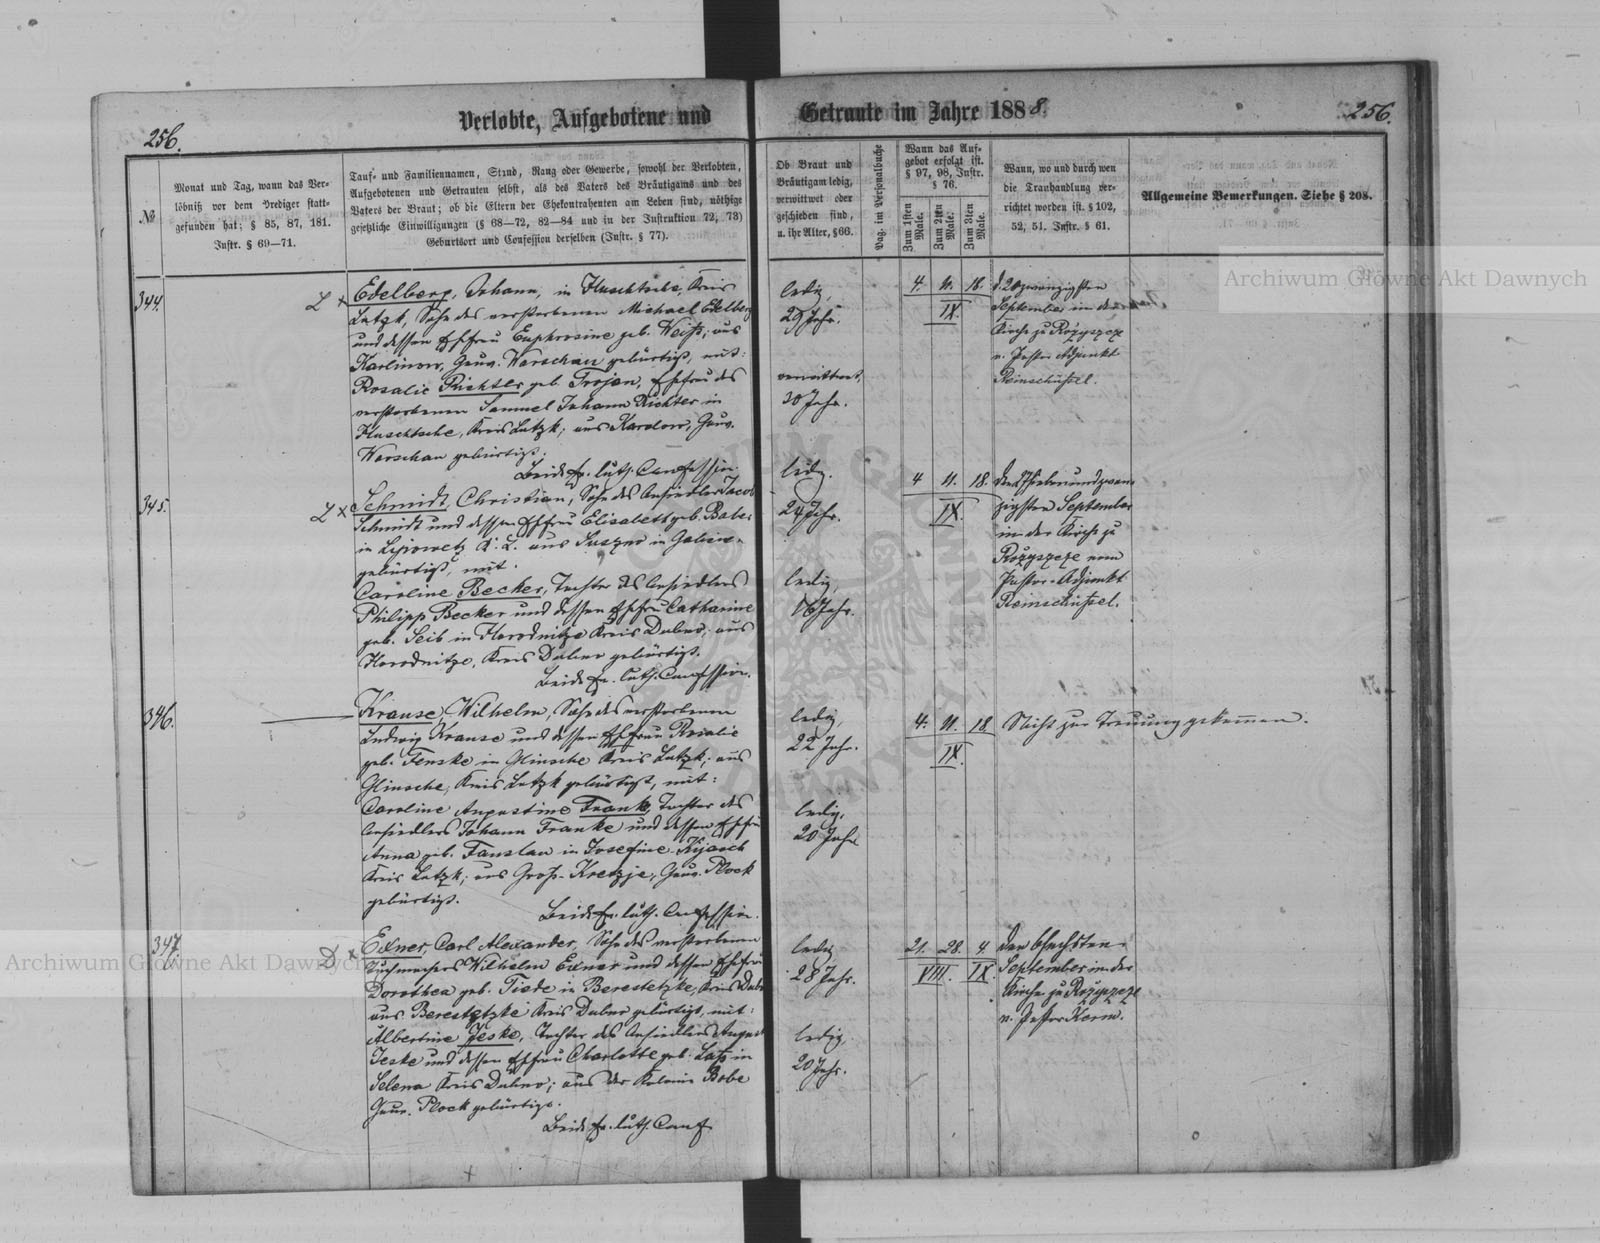 256.
Verlobte, Aufgebotene und
Getraute im Jahre 1888.
256.
№
Monat und Tag, wann das Ver-
löbniß vor dem Prediger statt-
gefunden hat; § 85, 87, 181.
Instr. § 69—71.
Tauf- und Familiennamen, Stand, Rang oder Gewerbe, sowohl der Verlobten,
Aufgebotenen und Getrauten selbst, als des Vaters des Bräutigams und des
Vaters der Braut; ob die Eltern der Ehekontrahenten am Leben sind, nöthige
gesetzliche Einwilligungen (§ 68—72, 82—84 und in der Instruktion 72, 73)
Geburtsort und Confession derselben (Instr. § 77).
Ob Braut und
Bräutigam ledig,
verwittwet oder
geschieden sind,
u. ihr Alter, § 66.
Pag. im Personalbuche
Wann das Auf-
gebot erfolgt ist.
§ 97, 98, Instr.
§ 76.
Zum 1sten Male.
Zum 2ten Male.
Zum 3ten Male.
Wann, wo und durch wen
die Trauhandlung ver-
richtet worden ist. § 102,
52, 51. Instr. § 61.
Allgemeine Bemerkungen. Siehe § 208.
344.
L x
Edelberg, Johann, in Kreis
Lutzk, Sohn des verstorbenen Michael Edelberg
und dessen Ehefrau Euphrosine geb. Weiß; aus
Karlinow, Gouv. Warschau gebürtigt, mit:
Rosalie Richter geb. Trojan, Ehefrau des
verstorbenen Samuel Johann Richter in
Kreis Lutzk; aus Karolow, Gouv.
Warschau gebürtigt.
Beide Ev. luth. Confession.
ledig,
29 Jahr.
verwittwet,
30 Jahr.
4. 11. 18.
IX.
d. 20 zwanzigsten
September in der
Kirche zu Rożyszcze
v. Pastor Adjunkt
Reinschüssel.
345.
L x
Schmidt, Christian, Sohn des Ansiedlers Jacob
Schmidt und dessen Ehefrau Elisabeth geb. Baber
in Lipowetz K. L. aus Suszno in Galizien
gebürtigt, mit
Caroline Becker, Tochter des Ansiedlers
Philipp Becker und dessen Ehefrau Catharine
geb. Seib in Horodnitze Kreis Dubno; aus
Horodnitze, Kreis Dubno gebürtigt.
Beide Ev. luth. Confession.
ledig.
24 Jahr.
ledig
Jahr.
4 11. 18.
IX.
den 27 siebenundzwan-
zigsten September
in der Kirche zu
Rożyszcze vom
Pastor-Adjunkt
Reinschüssel.
346.
Krause, Wilhelm, Sohn des verstorbenen
Ludwig Krause und dessen Ehefrau Rosalie
geb. Fenske in Glinsche Kreis Lutzk; aus
Glinsche, Kreis Lutzk gebürtigt, mit:
Caroline Augustine Franke, Tochter des
Ansiedlers Johann Franke und dessen Ehefrau
Anna geb. Fanslau in Josefine-Kijasch
Kreis Lutzk; aus Groß-Kretzje, Gouv. Plock
gebürtigt.
Beide Ev. luth. Confession.
ledig,
22 Jahr.
ledig,
20 Jahr
4. 11. 18.
IX.
Nicht zur Trauung gekommen.
347.
D x
Exner, Carl Alexander, Sohn des verstorbenen
Tuchmachers Wilhelm Exner und dessen Ehefrau
Dorothea geb. Tiede in Berestetzke, Kreis Dubno
aus Berestetzke Kreis Dubno gebürtigt, mit:
Albertine Jeske, Tochter des Ansiedlers August
Jeske und dessen Ehefrau Charlotte geb. Latz in
Selena Kreis Dubno; aus der Kolonie Bobe
Gouv. Plock gebürtigt.
Beide Ev. luth. Conf.
ledig
28 Jahr.
ledig,
20 Jahr.
21. 28. 4
VIII. IX.
den 6 sechsten
September in der
Kirche zu Rożyszcze
v. Pastor Kerm.
Archiwum Główne Akt Dawnych
Archiwum Główne Akt Dawnych